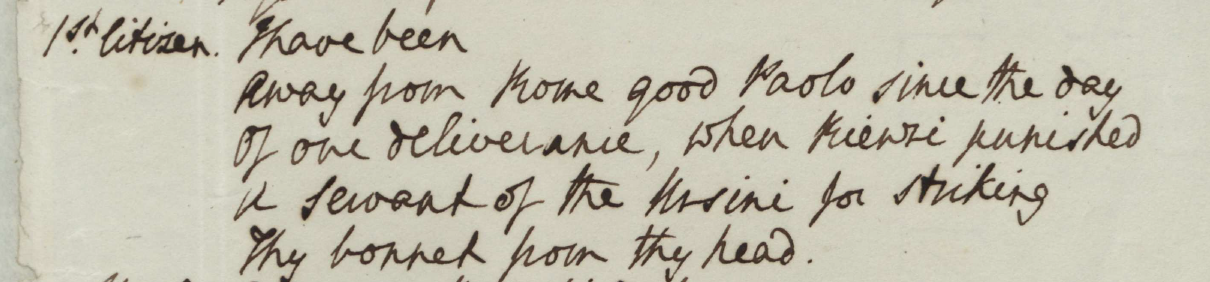 1st. Citizen. I have been
Away from Rome good Paolo since the day
Of our deliverance, when Rienzi punished
A servant of the Ursini for striking
Thy bonnet from thy head.